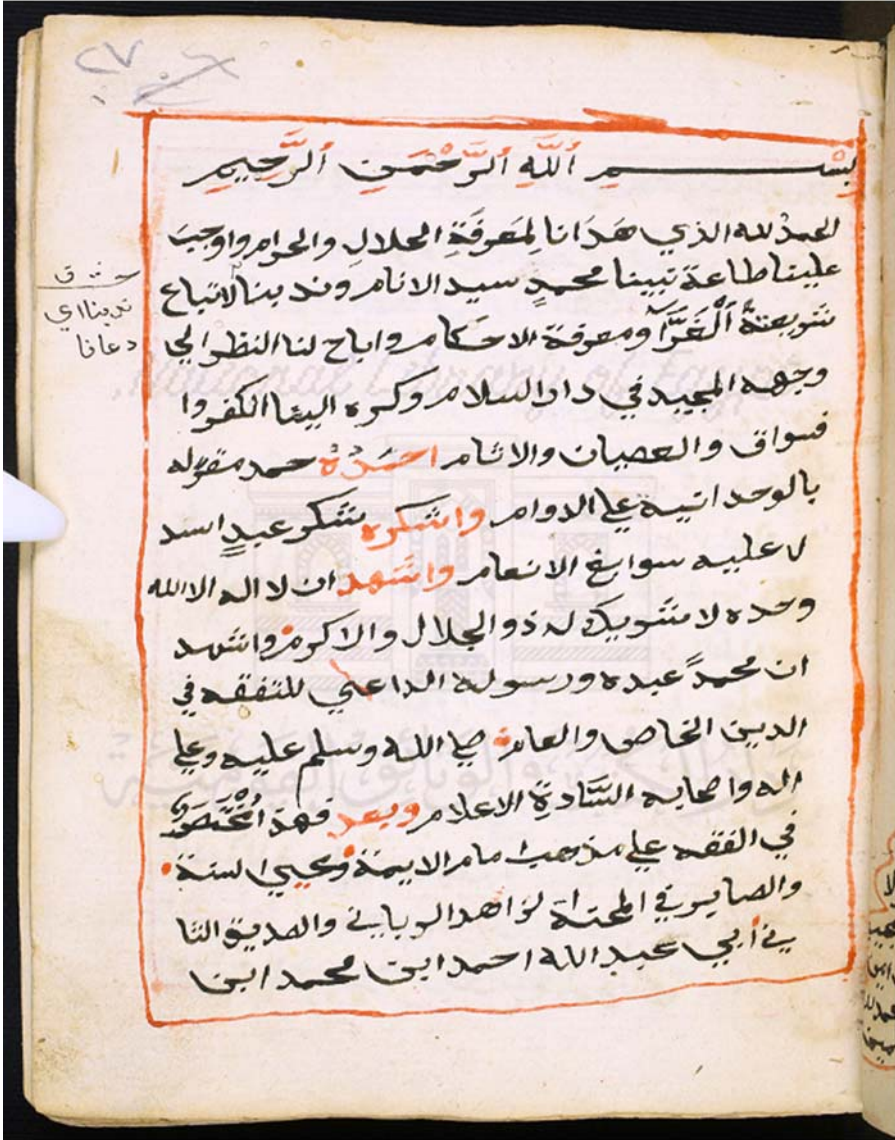 ٢٧
بسم اللَّهِ الرَّحْمَنِ الرَّحِيمِ
الحمدُ لله الذي هَدَانا لِمَعرِفَةِ الحلالِ والحرام واوجب
علينا طاعة نبينا محمدٍ سيد الانام وندبنا لاتباع
شريعتهُ الْغَرَّآ ومعرفة الاحكام واباح لنا النظر الي
وجهه المجيد في دار السلام وكره الينا الكفر وا
فسواق والعصيان والاثام احمَدُهُ حمد مقرله
بالوحدانية علي الدوام واشكره شكر عبدٍ اسد
لا عليه سوابغ الانعام واشهد ان لا اله الا الله
وحده لا شريك له ذو الجلال والاكرم واشهد
ان محمدً عبده ورسوله الداعي للتفقه في
الدين الخاص والعام صلي الله وسلم عليه وعلي
اله واصحابه السَّادةِ الاعلام وبعد فهذا مُخْتَصَرٌ
في الفقه علي مذهب امام الايمة ومحيي السنة
والصابر في المحنة الزاهد الرباني والصديق الثا
ني أبي عبد الله احمد ابن محمد ابن
ندبنا اي
دعانا